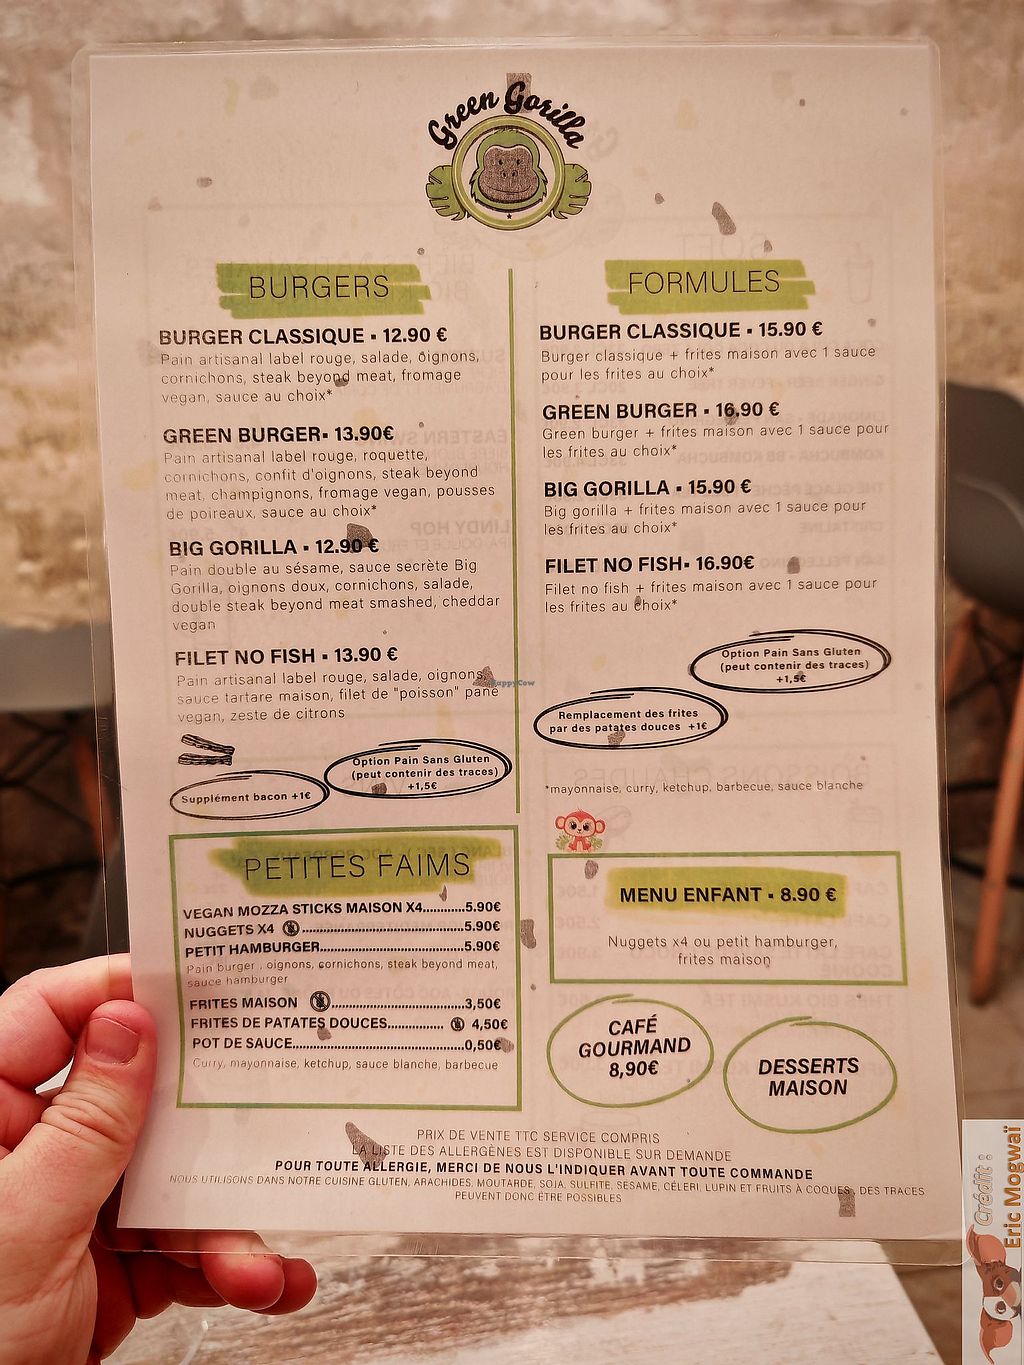 Green Gorilla
BURGERS
BURGER CLASSIQUE ▪ 12.90 €
Pain artisanal label rouge, salade, oignons,
cornichons, steak beyond meat, fromage
vegan, sauce au choix*
GREEN BURGER▪ 13.90€
Pain artisanal label rouge, roquette,
cornichons, confit d'oignons, steak beyond
meat, champignons, fromage vegan, pousses
de poireaux, sauce au choix*
BIG GORILLA ▪ 12.90 €
Pain double au sésame, sauce secrète Big
Gorilla, oignons doux, cornichons, salade,
double steak beyond meat smashed, cheddar
vegan
FILET NO FISH ▪ 13.90 €
Pain artisanal label rouge, salade, oignons,
sauce tartare maison, filet de "poisson" pané
vegan, zeste de citrons
Supplément bacon +1€
Option Pain Sans Gluten
(peut contenir des traces)
+1,5€
FORMULES
BURGER CLASSIQUE ▪ 15.90 €
Burger classique + frites maison avec 1 sauce
pour les frites au choix*
GREEN BURGER ▪ 16.90 €
Green burger + frites maison avec 1 sauce pour
les frites au choix*
BIG GORILLA ▪ 15.90 €
Big gorilla + frites maison avec 1 sauce pour
les frites au choix*
FILET NO FISH▪ 16.90€
Filet no fish + frites maison avec 1 sauce pour
les frites au choix*
Option Pain Sans Gluten
(peut contenir des traces)
+1,5€
Remplacement des frites
par des patates douces +1€
*mayonnaise, curry, ketchup, barbecue, sauce blanche
PETITES FAIMS
VEGAN MOZZA STICKS MAISON X4............5.90€
NUGGETS X4 ..............................................5.90€
PETIT HAMBURGER.........................................5.90€
Pain burger , oignons, cornichons, steak beyond meat,
sauce hamburger
FRITES MAISON ......................................3,50€
FRITES DE PATATES DOUCES................ 4,50€
POT DE SAUCE.................................................0,50€
Curry, mayonnaise, ketchup, sauce blanche, barbecue
MENU ENFANT ▪ 8.90 €
Nuggets x4 ou petit hamburger,
frites maison
CAFÉ
GOURMAND
8,90€
DESSERTS
MAISON
PRIX DE VENTE TTC SERVICE COMPRIS
LA LISTE DES ALLERGÈNES EST DISPONIBLE SUR DEMANDE
POUR TOUTE ALLERGIE, MERCI DE NOUS L'INDIQUER AVANT TOUTE COMMANDE
NOUS UTILISONS DANS NOTRE CUISINE GLUTEN, ARACHIDES, MOUTARDE, SOJA, SULFITE, SÉSAME, CÉLERI, LUPIN ET FRUITS À COQUES , DES TRACES
PEUVENT DONC ÊTRE POSSIBLES
HappyCow
Crédit :
Eric Mogwaï